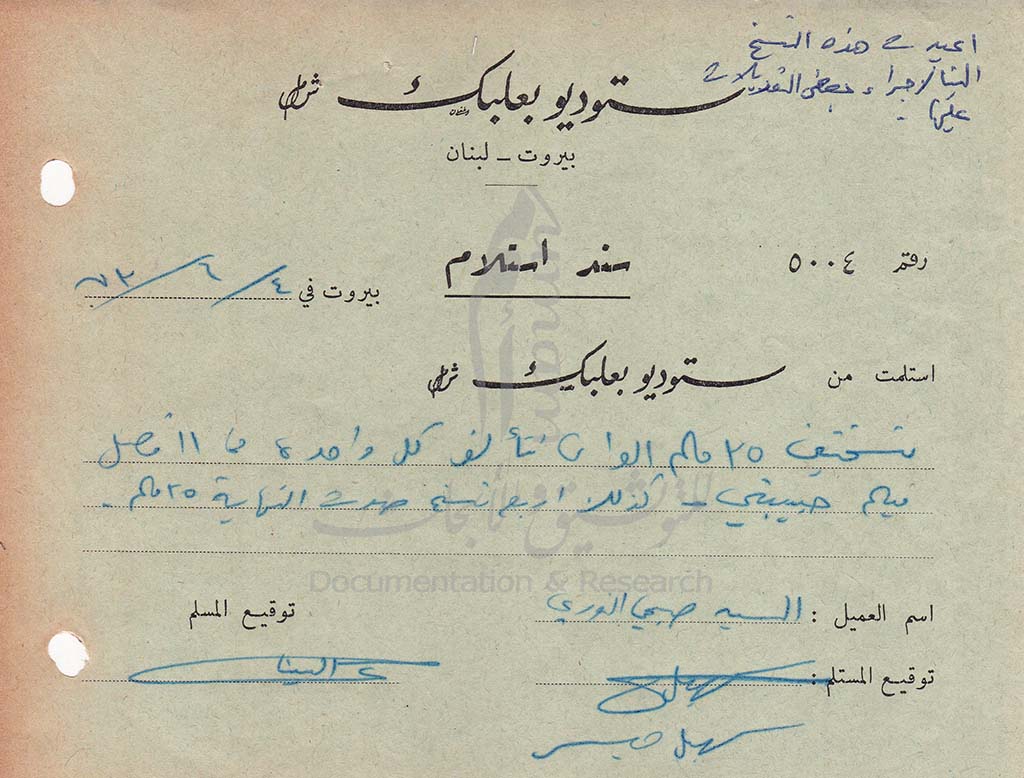 اعيدت هذه النسخ
الينا لاجراء بعض التعديلات
عليها.
ستوديو بعلبك ش.م.ل
بيروت - لبنان
رقم ٥٠٠٤
سند استلام
بيروت في ٤ / ٤ / ٧٣
استلمت من ستوديو بعلبك ش.م.ل
نسختين ٣٥ ملم الوان تتألف كل واحدة من ١١ فصل
فيلم حبيبتي - كذلك اربع نسخ صوت النهاية ٣٥ ملم .
للتوثيق والأبحاث
Documentation & Research
اسم العميل : السيد صبحي النوري
توقيع المسلم
توقيع المستلم :
سهيل